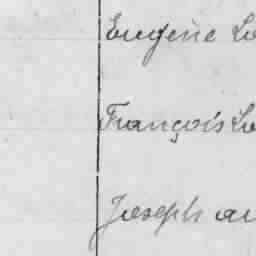 Eugène Lo
François Lo
Joseph au